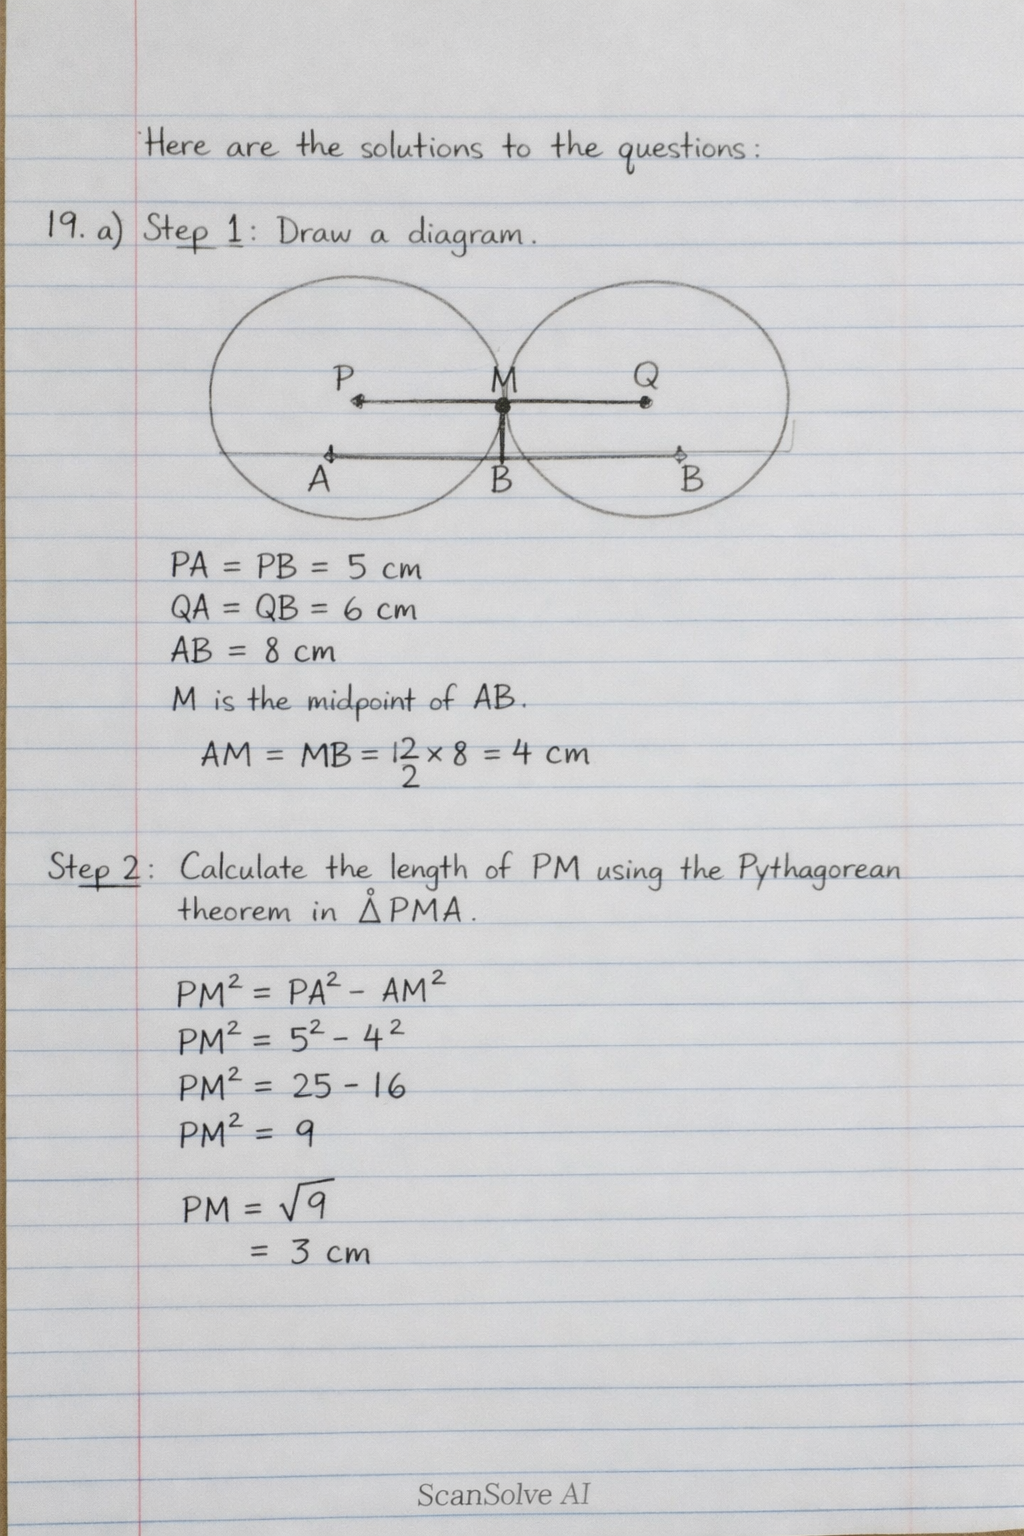 Here are the solutions to the questions:
19. a) Step 1: Draw a diagram.
P M Q
A B B
PA = PB = 5 cm
QA = QB = 6 cm
AB = 8 cm
M is the midpoint of AB.
AM = MB = 12/2 × 8 = 4 cm
Step 2: Calculate the length of PM using the Pythagorean
theorem in Δ̊ PMA.
PM² = PA² - AM²
PM² = 5² - 4²
PM² = 25 - 16
PM² = 9
PM = √9
= 3 cm
ScanSolve AI